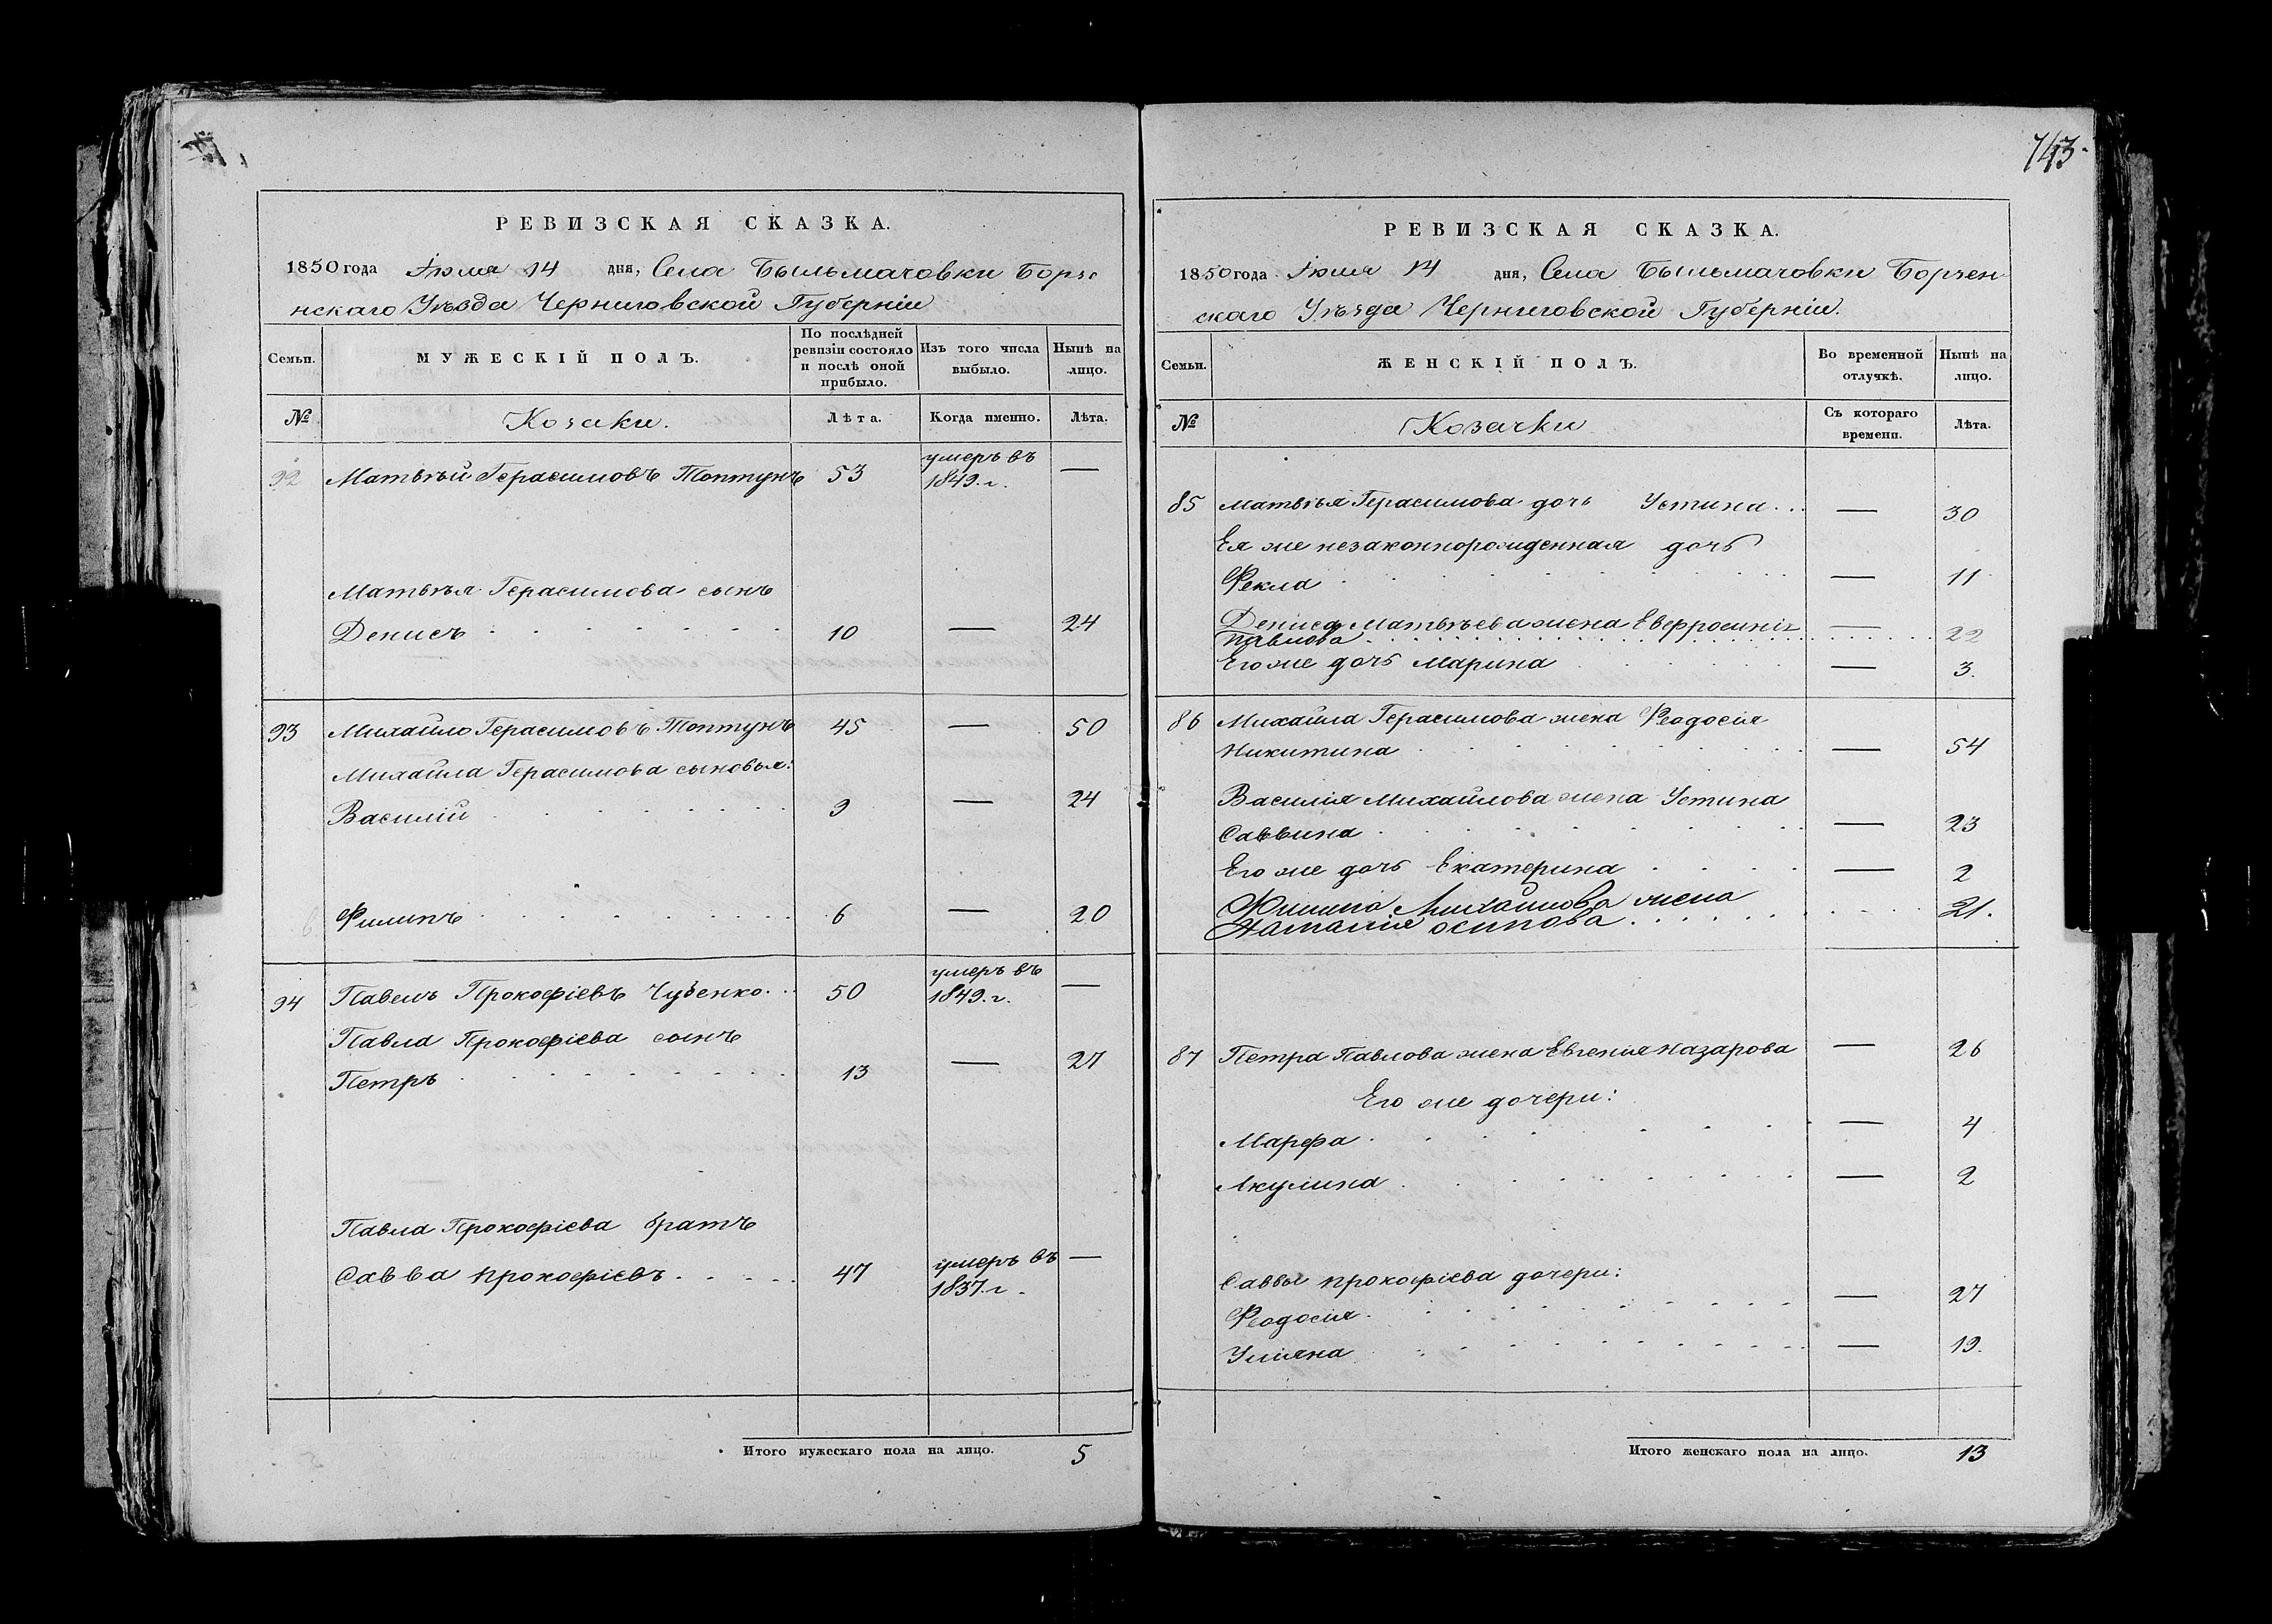 743.
РЕВИЗСКАЯ СКАЗКА.
1850 года Іюля 14 дня, Села Быльмачовки Борзе
нскаго Уѣзда Черниговской Губерніи
Семьи.
МУЖЕСКІЙ ПОЛЪ.
По послѣдней ревизіи состояло и послѣ оной прибыло.
Изъ того числа выбыло.
Нынѣ на лицо.
№
Козаки.
Лѣта.
Когда именно.
Лѣта.
92 Матвѣй Герасимовъ Топтунъ 53 умеръ въ 1849. г. —
Матвѣя Герасимова сынъ
Денисъ 10 — 24
93 Михайло Герасимовъ Топтунъ 45 — 50
Михайла Герасимова сыновья:
Василій 9 — 24
Филипъ 6 — 20
94 Павелъ Прокофіевъ Чубенко 50 умеръ въ 1849. г. —
Павла Прокофіева сынъ
Петръ 13 — 27
Павла Прокофіева братъ
Савва Прокофіевъ 47 умеръ въ 1837. г. —
Итого мужескаго пола на лицо. 5
РЕВИЗСКАЯ СКАЗКА.
1850 года Іюля 14 дня, Села Быльмачовки Борзен
скаго Уѣзда Черниговской Губерніи.
Семьи.
ЖЕНСКІЙ ПОЛЪ.
Во временной отлучкѣ.
Нынѣ на лицо.
№
Козачки
Съ котораго времени.
Лѣта.
85 Матвѣя Герасимова дочь Устина — 30
Ея же незаконнорожденная дочь
Фекла — 11
Дениса Матвѣева жена Евфросинія —
Павлова 22
Его же дочь Марина — 3.
86 Михайла Герасимова жена Феодосія
Никитина — 54
Василія Михайлова жена Устина
Саввина — 23
Его же дочь Екатерина — 2
Филипа Михайлова жена
Наталія Осипова 21.
87 Петра Павлова жена Евгенія Назарова — 26
Его же дочери:
Марфа — 4
Акулина — 2
Саввы Прокофіева дочери:
Феодосія — 27
Уліяна — 19.
Итого женскаго пола на лицо. 13